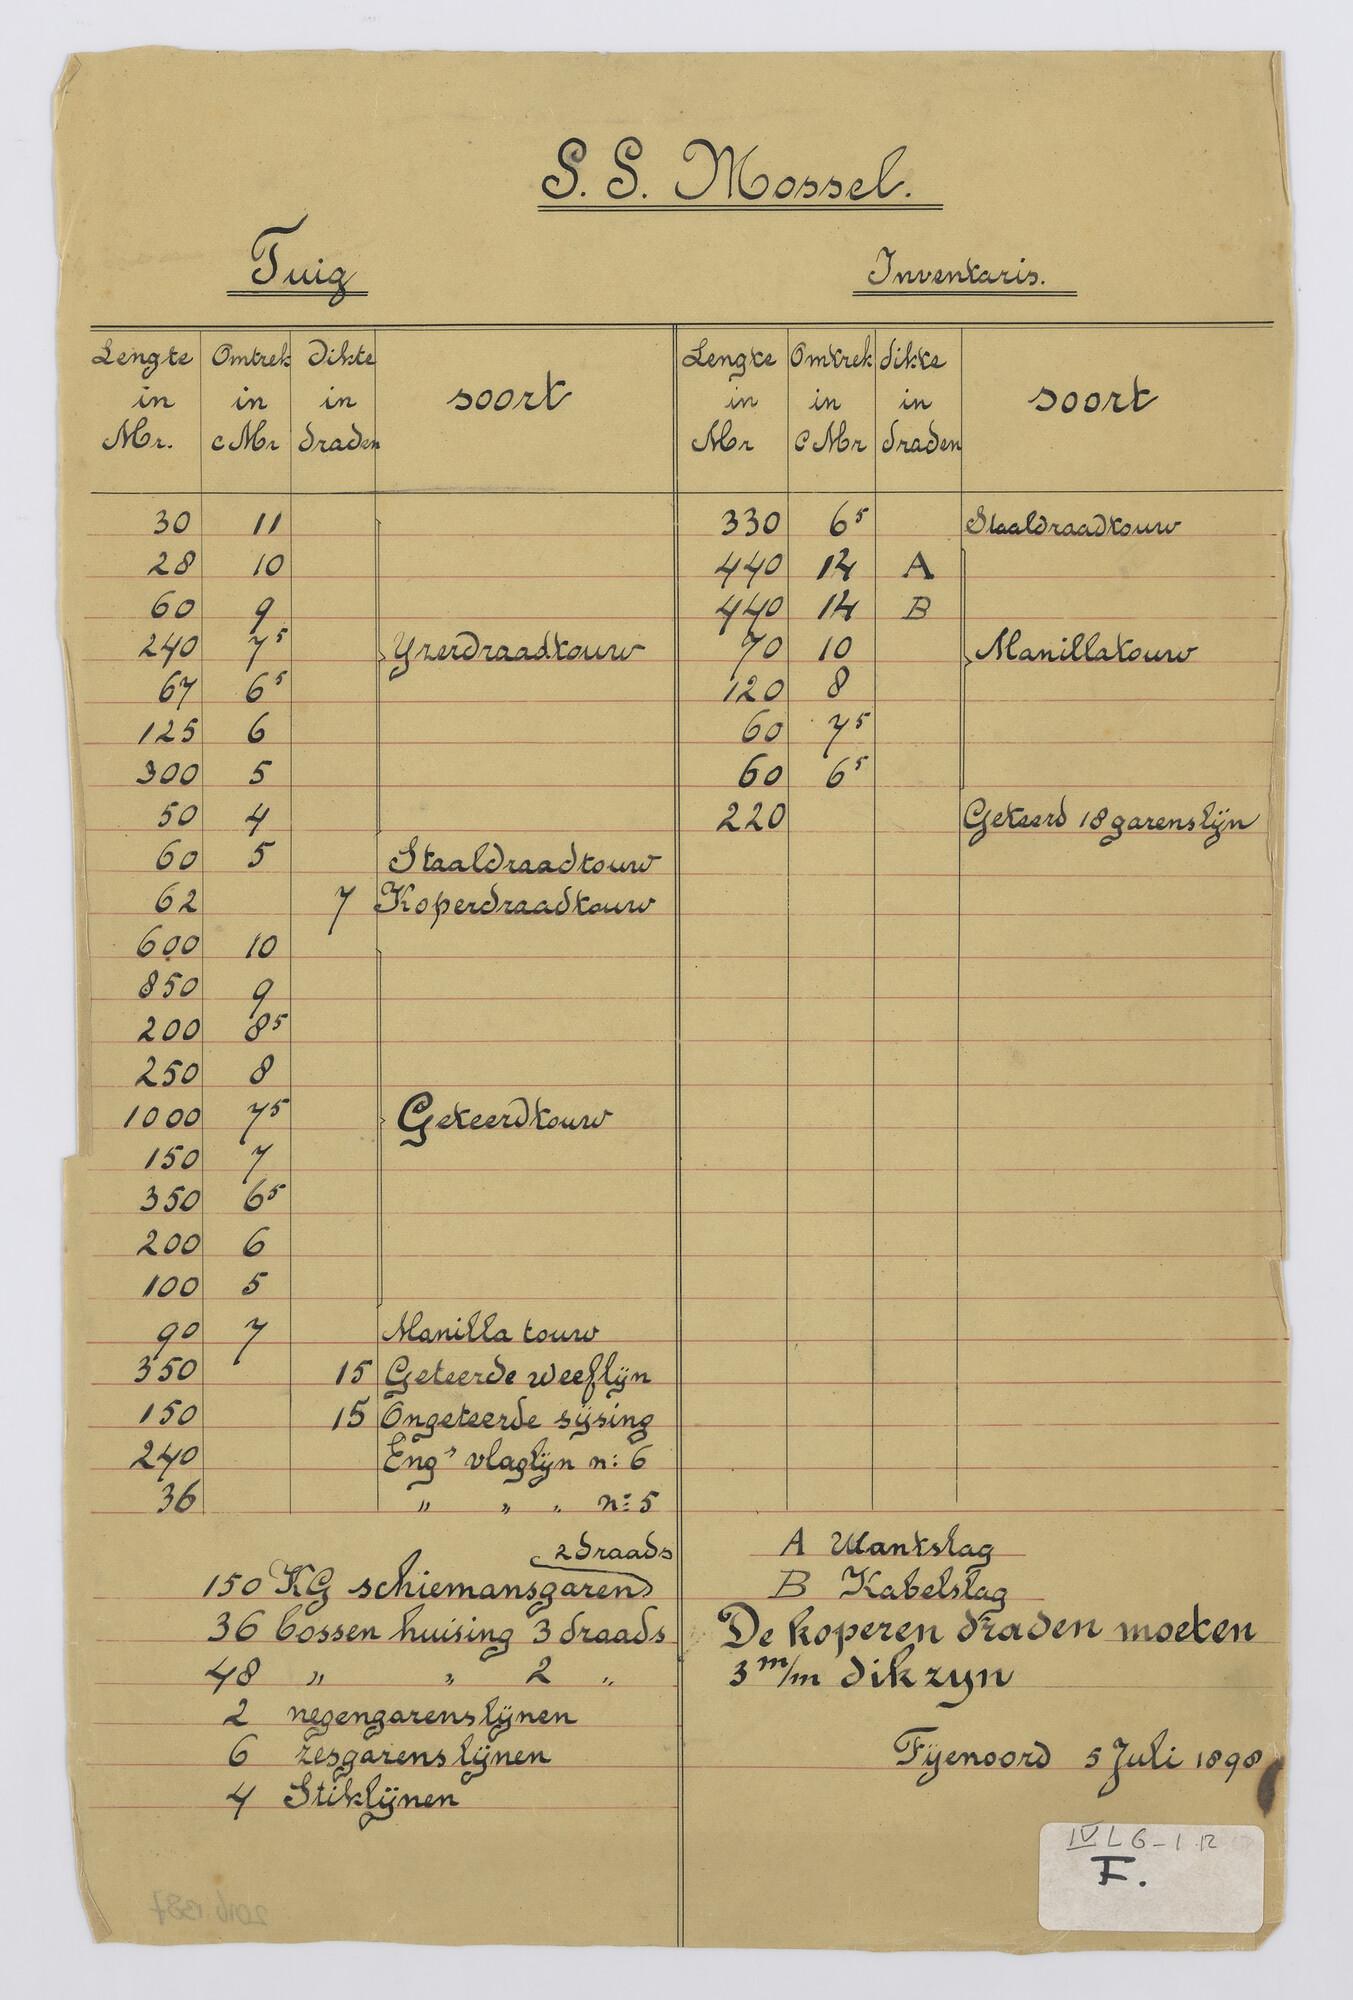 S. S. Mossel.
Tuig
Lengte in Mr. Omtrek in cMr dikte in draden soort
30 11
28 10
60 9
240 7⁵ Yzerdraadtouw
67 6⁵
125 6
300 5
50 4
60 5 Staaldraadtouw
62 7 Koperdraadtouw
600 10
850 9
200 8⁵
250 8
1000 7⁵ Geteerdtouw
150 7
350 6⁵
200 6
100 5
90 7 Manilla touw
350 15 Geteerde weeflijn
150 15 Ongeteerde sijsing
240 Engˢ vlaglijn n: 6
36 " " " n: 5
2 draads
150 KG schiemansgaren
36 bossen huising 3 draads
48 " " 2 "
2 negengarenslijnen
6 zesgarenslijnen
4 Stiklijnen
Inventaris.
Lengte in Mr Omtrek in cMr dikte in draden soort
330 6⁵ Staaldraadtouw
440 14 A
440 14 B
70 10 Manillatouw
120 8
60 7⁵
60 6⁵
220 Geteerd 18 garenslijn
A Wantslag
B Kabelslag
De koperen draden moeten
3 m/m dik zyn
Fijenoord 5 Juli 1898
IV L 6-1 R
F.